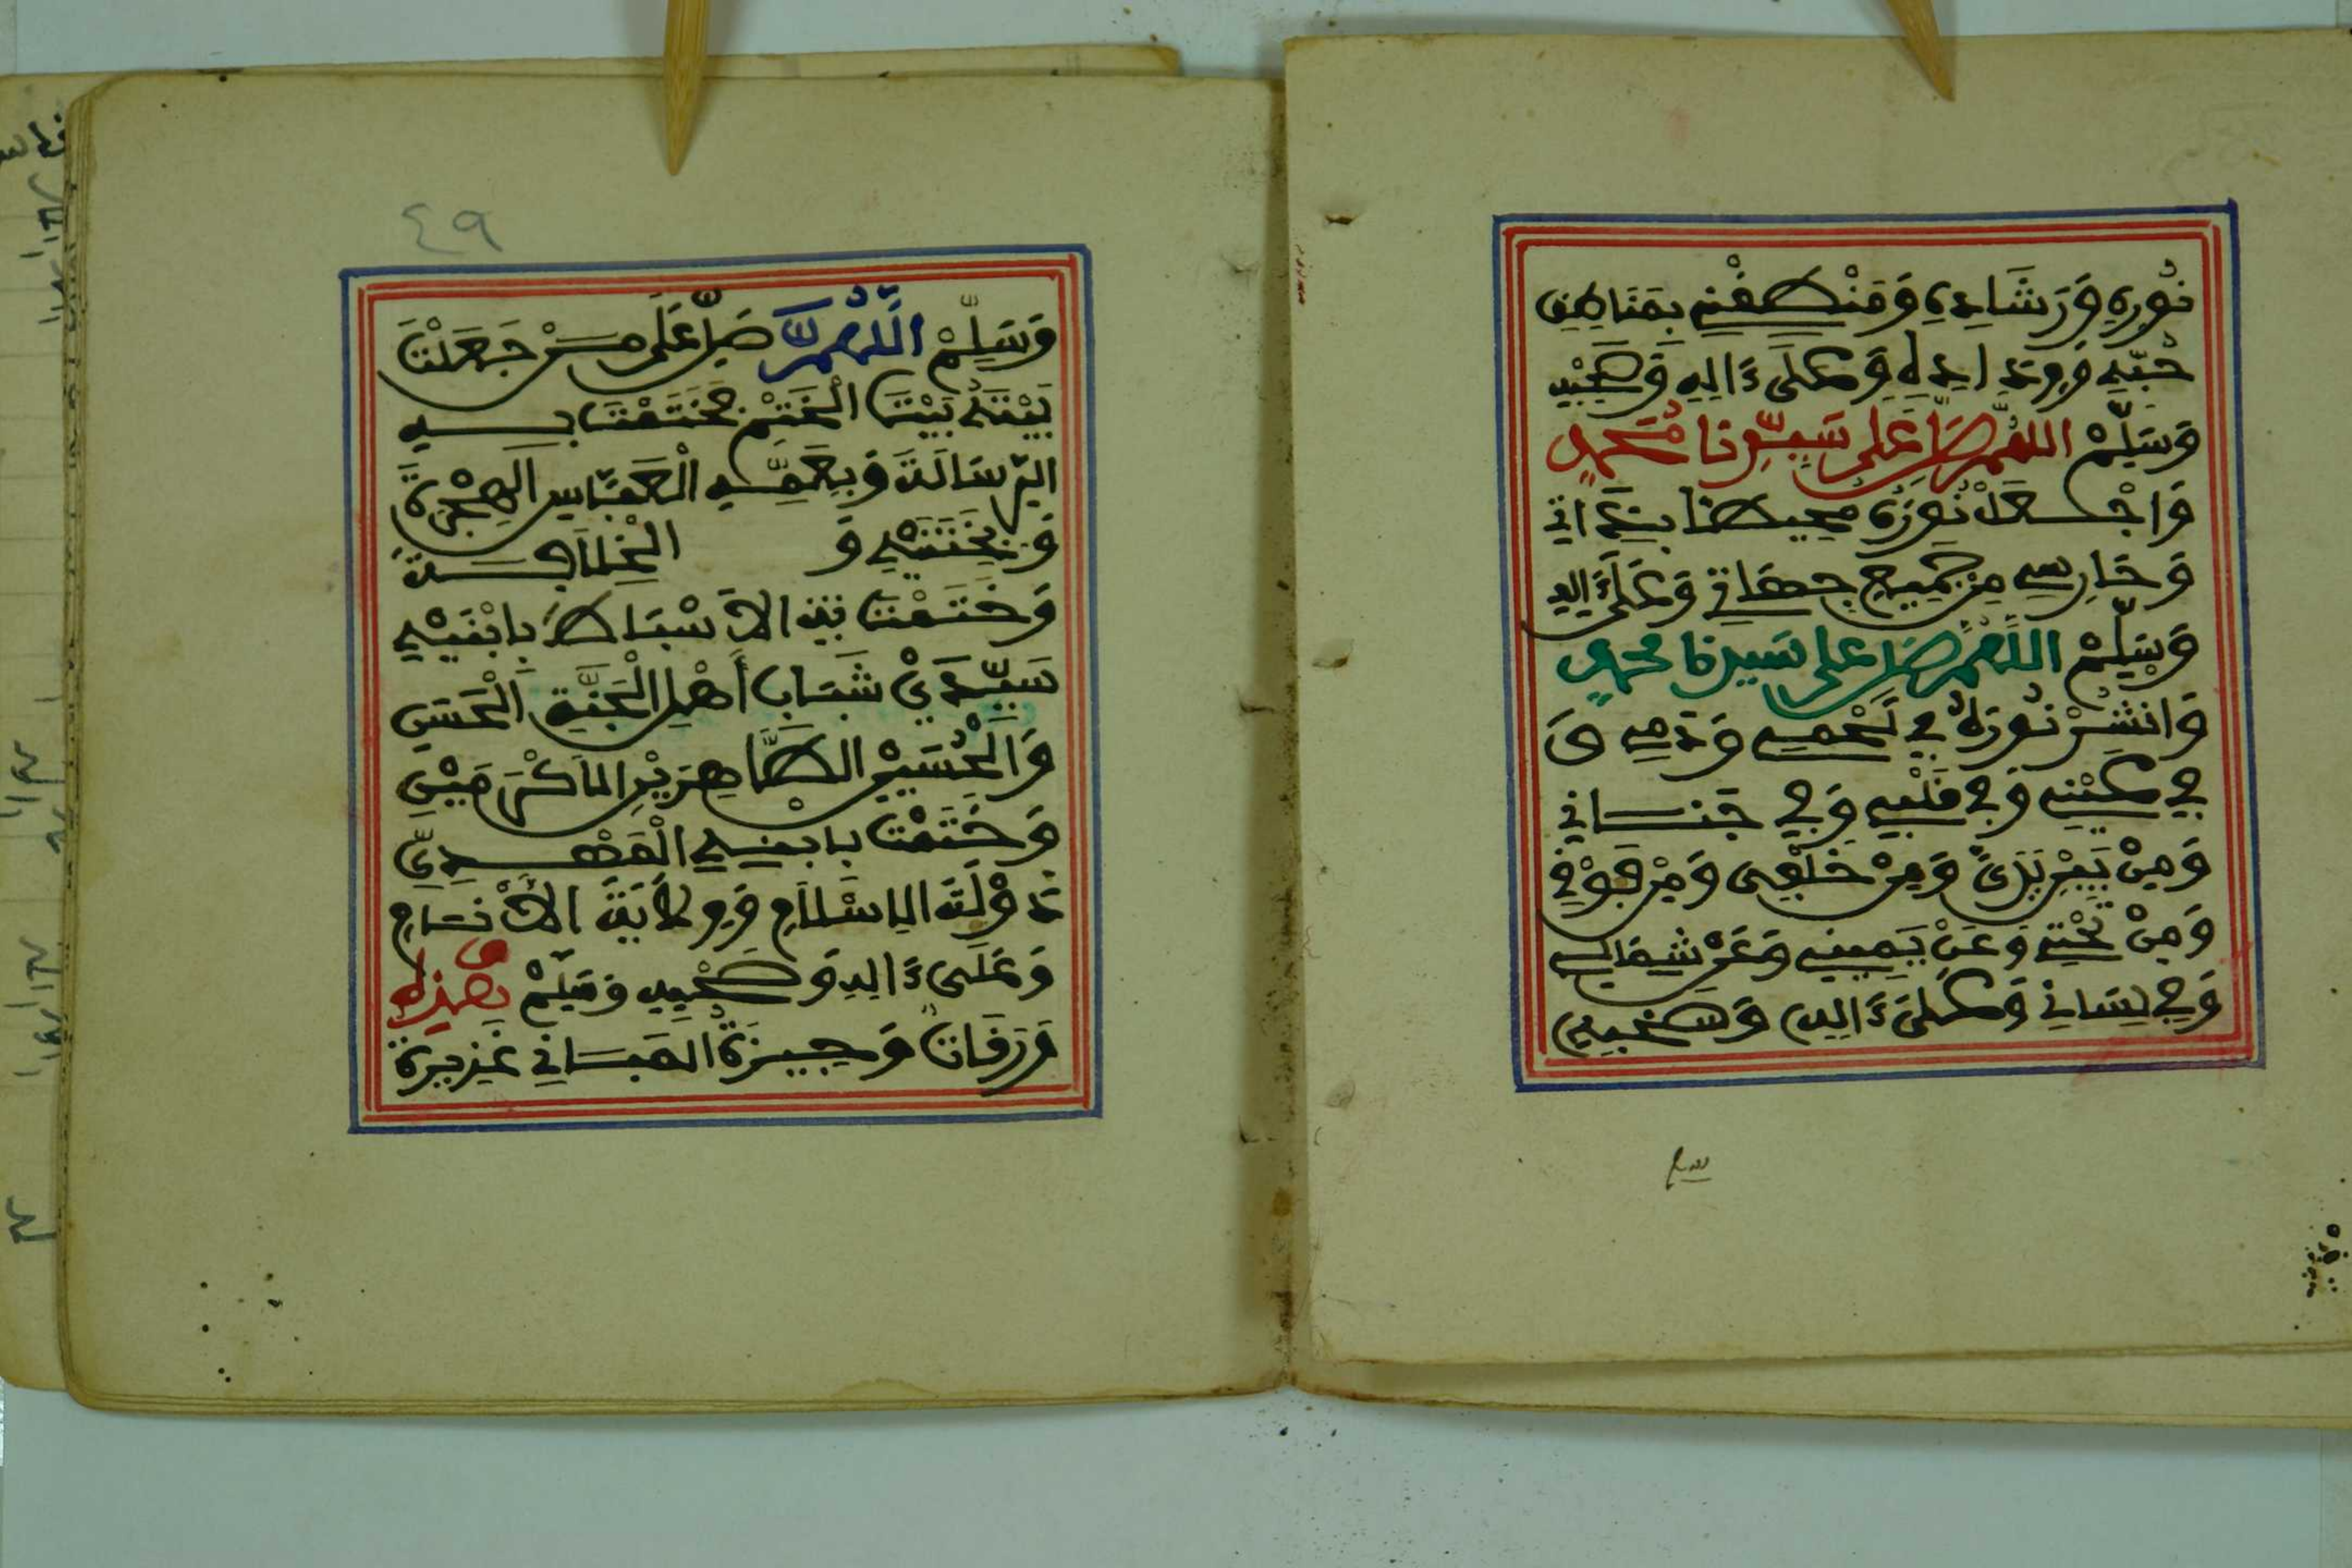 نُورِهِ وَرَشَادِهِ وَمَنْطِقْنِي بِمَنَاطِقِ
حُبِّهِ وَوِدَادِهِ وَعَلَى ءَالِهِ وَصَحْبِهِ
وَسَلِّمْ اللهم صَلِّ عَلَى سَيِّدِنَا مُحَمَّدٍ
وَاجْعَلْ نُورَهُ مُحِيطًا بِذَاتِي
وَحَارِسِي مِن جَمِيعِ جِهَاتِي وَعَلَى ءَالِهِ
وَسَلِّمْ اللهم صل على سيدنا محمدٍ
وَانْشُرْ نُورَهُ فِي لَحْمِي وَدَمِي وَ
فِي عَيْنِي وَفِي قَلْبِي وَفِي جَنَانِي
وَمِنْ بَيْنِ يَدَيَّ وَمِنْ خَلْفِي وَمِنْ فَوْقِي
وَمِنْ تَحْتِي وَعَنْ يَمِينِي وَعَنْ شِمَالِي
وَفِي لِسَانِي وَعَلَى ءَالِهِ وَصَحْبِهِ
٤٩
وَسَلِّمْ اللَّهُمَّ صَلِّ عَلَى مَنْ جَعَلْتَ
بَيْتَهُ بَيْتَ الْخَتْمِ فَخَتَمْتَ بِهِ
الرِّسَالَةَ وَبِعَمِّهِ الْعَبَّاسِ الْهِجْرَةَ
وَبِخَتَنَيْهِ وَ الْخِلَافَةَ
وَخَتَمْتَ الْأَسْبَاطَ بِابْنَيْهِ
سَيِّدَيْ شَبَابِ أَهْلِ الْجَنَّةِ الْحَسَنِ
وَالْحُسَيْنِ الطَّاهِرَيْنِ الْأَكْرَمَيْنِ
وَخَتَمْتَ بِابْنِهِ الْمَهْدِيِّ
دَوْلَةَ الْإِسْلَامِ وَوِلَايَةَ الْأَنَامِ
وَعَلَى ءَالِهِ وَصَحْبِهِ وَسَلِّمْ فهذه
وَرَقَاتٌ وَجِيزَةُ الْمَبَانِي غَزِيرَةُ